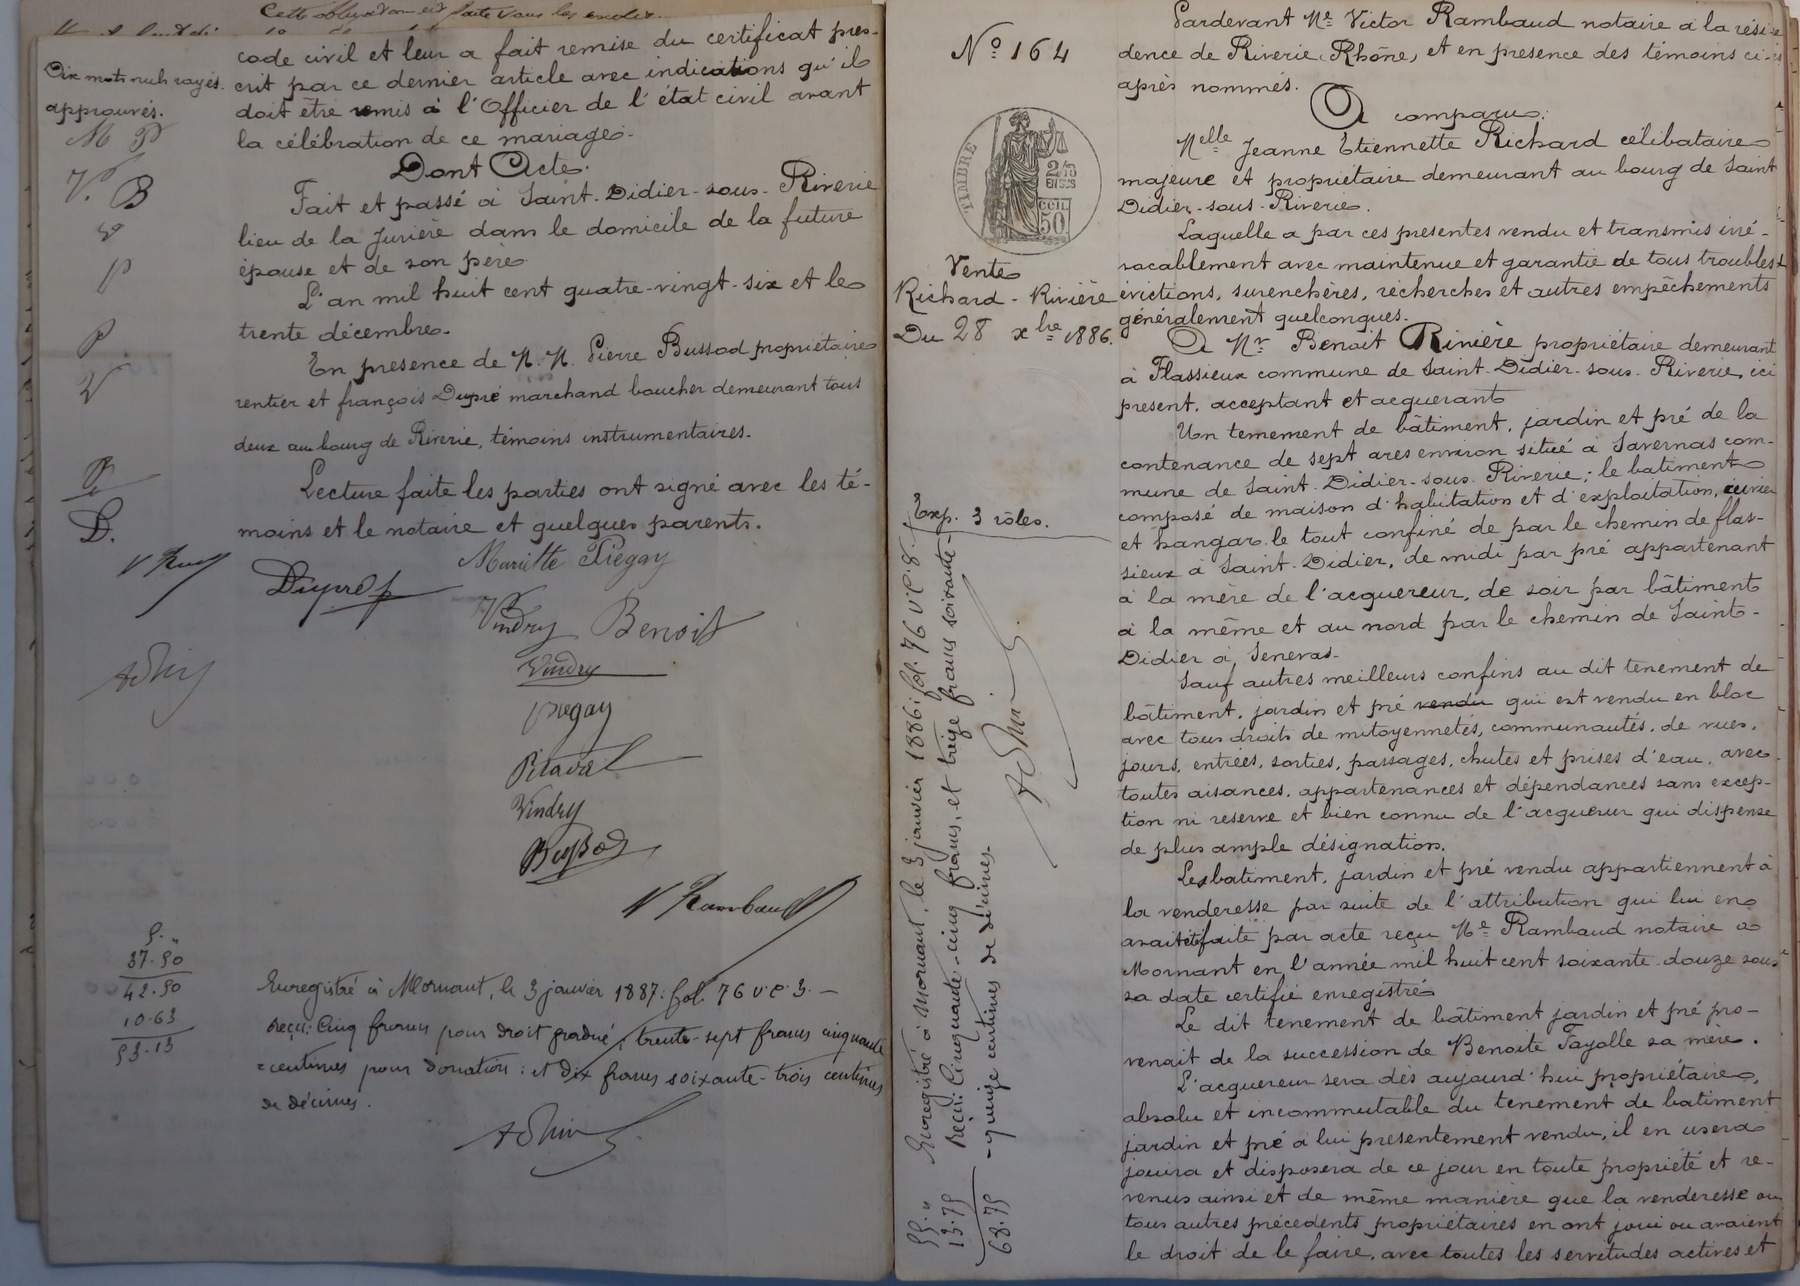 Cette observation est faite sous les
code civil et leur a fait remise du certificat pres-
crit par ce dernier article avec indications qu'il
doit être remis à l'Officier de l'état civil avant
la célébration de ce mariage.
Dix mots nuls rayés.
approuvés.
M P
V. B
P
P.
V
D.
Dont Acte.
Fait et passé à Saint-Didier-sous-Riverie
lieu de la Jurière dans le domicile de la future
épouse et de son père
L'an mil huit cent quatre-vingt-six et le
trente décembre.
En presence de M. M. Pierre Bussod propriétaire
rentier et françois Dupré marchand boucher demeurant tous
deux au bourg de Riverie, témoins instrumentaires.
Lecture faite les parties ont signé avec les té-
moins et le notaire et quelques parents.
Mariette Pregay
Dupré f
Vindry Benoit
Vindry
Pregay
Pitaval
Vindry
Bussod
V Rambaud
5.,,
37.50
42.50
10.63
53.13
Enregistré à Mornant, le 3 janvier 1887: fol. 76 v. c. 3. —
Reçu: Cinq francs pour droit gradué; trente-sept francs cinquante
=centimes pour donation: et dix francs soixante-trois centimes
de décimes.
No 164
TIMBRE
2/10
EN SUS
50
CEN
Vente
Richard - Rivière
Du 28 xbre 1886.
Exp. 3 rôles.
Enregistré à Mornant, le 3 janvier 1886: fol. 76 v. c. 8.
Reçu: Cinquante-cinq francs, et treize francs soixante-
-quinze centimes de décimes.
55.,,
13.75
68.75
Pardevant Me Victor Rambaud notaire à la rési-
dence de Riverie (Rhône), et en presence des témoins ci-
après nommés.
A comparu:
Melle Jeanne Etiennette Richard célibataire
majeure et propriétaire demeurant au bourg de Saint
Didier-sous-Riverie.
Laquelle a par ces presentes vendu et transmis irré-
vocablement avec maintenue et garantie de tous troubles
évictions, surenchères, recherches et autres empêchements
généralement quelconques.
A Mr Benoit Rivière propriétaire demeurant
à Flassieux commune de Saint-Didier-sous-Riverie, ici
present, acceptant et acquerant
Un tenement de bâtiment, jardin et pré de la
contenance de sept ares environ situé à Savernas com-
mune de Saint-Didier-sous-Riverie; le batiment
composé de maison d'habitation et d'exploitation, cuvier
et hangar, le tout confiné de par le chemin de flas-
sieux à Saint-Didier, de midi par pré appartenant
à la mère de l'acquereur, de soir par bâtiment
à la même et au nord par le chemin de Saint-
Didier à Seneras.
Sauf autres meilleurs confins au dit tenement de
bâtiment, jardin et pré vendu qui est vendu en bloc
avec tous droits de mitoyennetés, communautés, de vues,
jours, entrées, sorties, passages, chutes et prises d'eau, avec
toutes aisances, appartenances et dépendances sans excep-
tion ni reserve et bien connu de l'acquereur qui dispense
de plus ample désignation.
Les batiment, jardin et pré vendu appartiennent à
la venderesse par suite de l'attribution qui lui en
avait été faite par acte reçu Me Rambaud notaire à
Mornant en l'année mil huit cent soixante-douze sous
sa date certifié enregistré
Le dit tenement de bâtiment jardin et pré pro-
venait de la succession de Benoite Fayolle sa mère.
L'acquereur sera dès aujourd'hui propriétaire,
absolu et incommutable du tenement de batiment
jardin et pré à lui presentement vendu, il en usera
jouira et disposera de ce jour en toute propriété et re-
venus ainsi et de même manière que la venderesse ou
tous autres précedents propriétaires en ont joui ou avaient
le droit de le faire, avec toutes les servitudes actives et